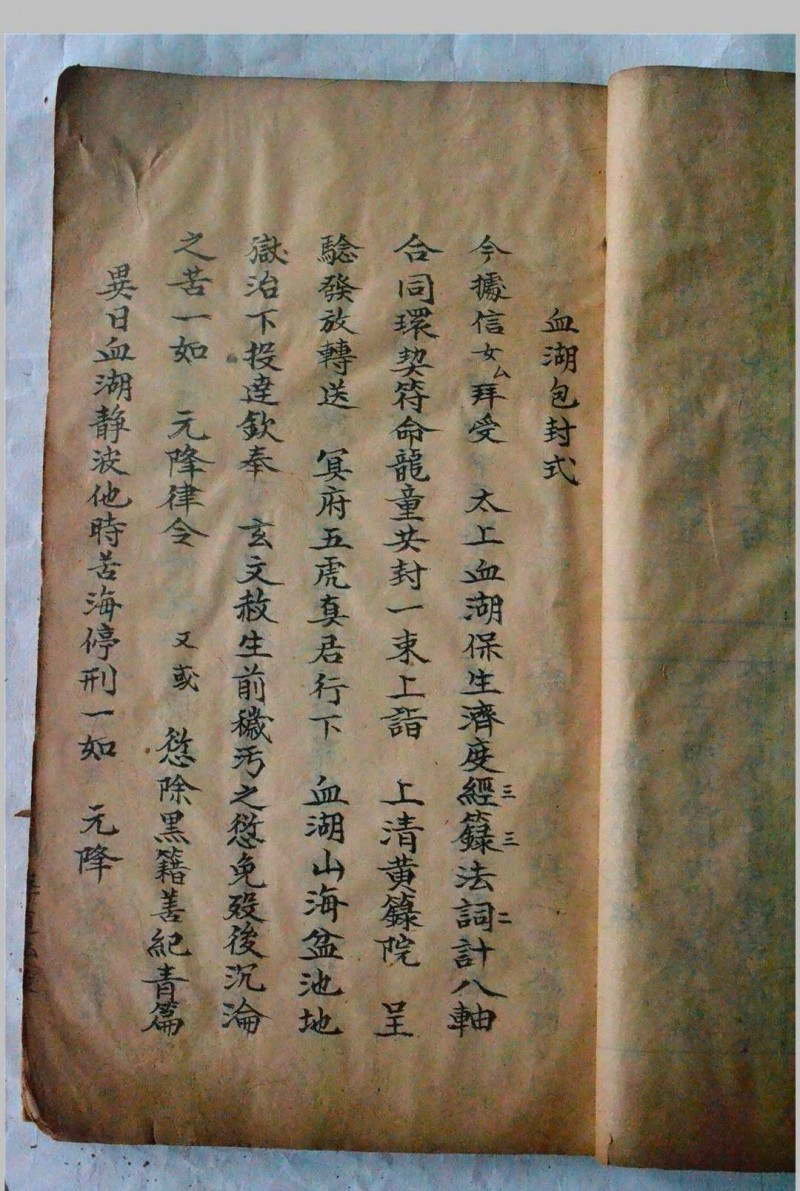 血湖包封式
今據信女厶拜受 太上血湖保生濟度經三籙三法詞二計八軸
合同環契符命龍童共封一束上詣 上清黃籙院 呈
驗發放轉送 冥府五虎真君行下 血湖山海盆池地
嶽治下投達欽奉 玄文赦生前穢污之愆免歿後沉淪
之苦一如 元降律令 又或 愆除黑籍善紀青篇
異日血湖靜波他時苦海停刑一如 元降